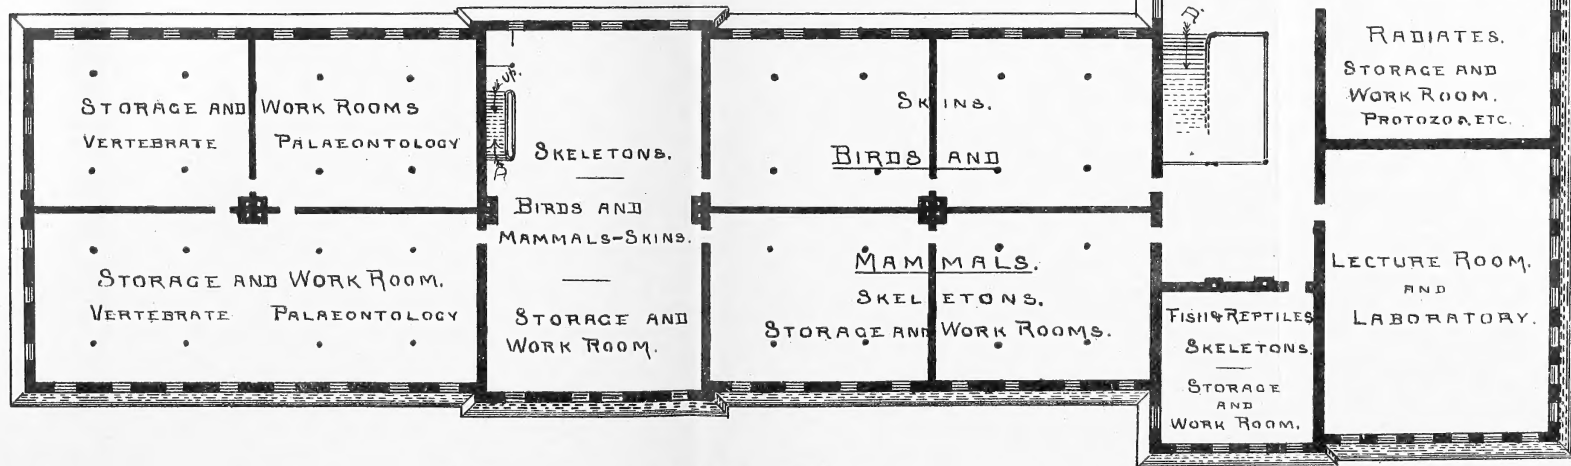 STORAGE AND WORK ROOMS
VERTEBRATE PALAEONTOLOGY
STORAGE AND WORK ROOM.
VERTEBRATE PALAEONTOLOGY
UP.
SKELETONS.
BIRDS AND
MAMMALS-SKINS.
STORAGE AND
WORK ROOM.
SKINS.
BIRDS AND
MAMMALS.
SKELETONS.
STORAGE AND WORK ROOMS.
D.
FISH & REPTILES
SKELETONS.
STORAGE
AND
WORK ROOM.
RADIATES.
STORAGE AND
WORK ROOM.
PROTOZOA, ETC.
LECTURE ROOM.
AND
LABORATORY.